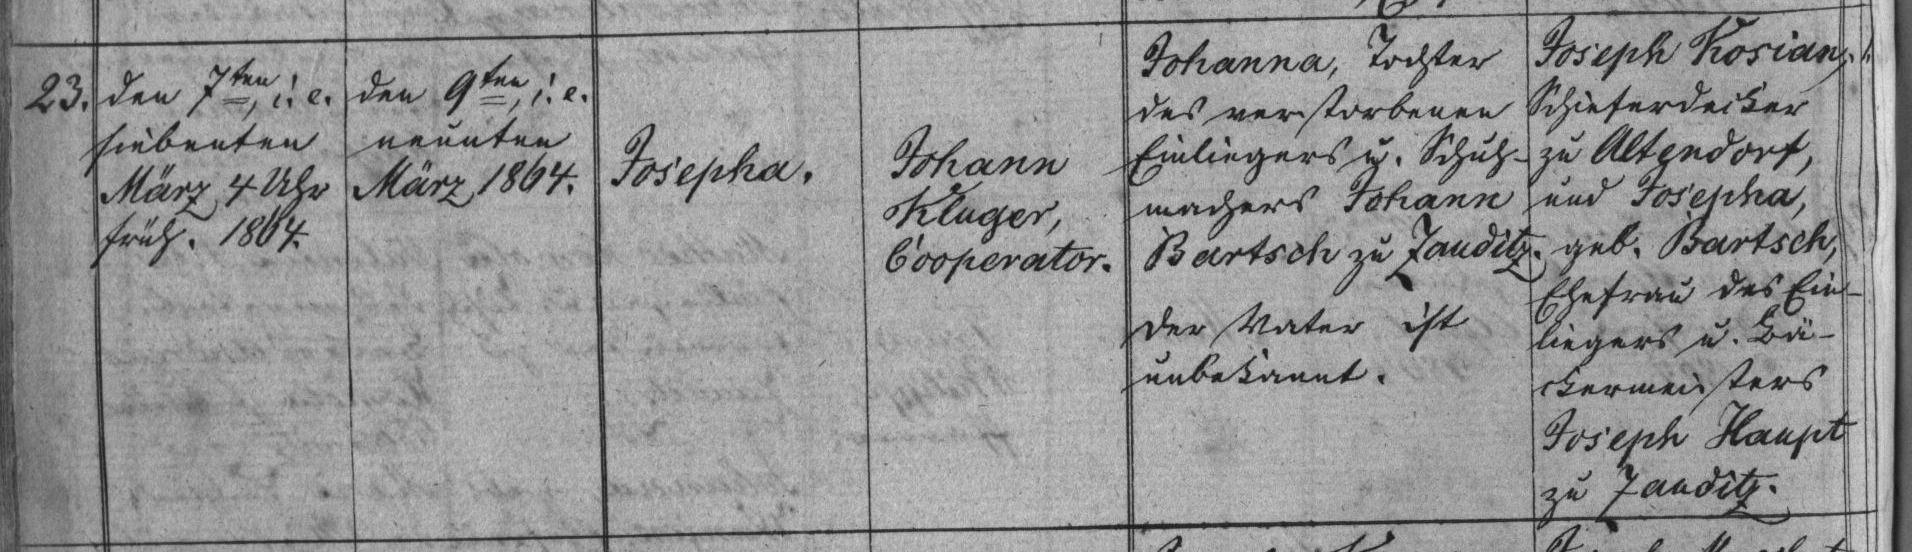 23.
den 7ten, i. e.
siebenten
März, 4 Uhr
früh. 1864.
den 9ten, i. e.
neunten
März, 1864.
Josepha.
Johann
Kluger,
Cooperator.
Johanna, Tochter
des verstorbenen
Einliegers u. Schuh-
machers Johann
Bartsch zu Zauditz.
Der Vater ist
unbekannt.
Joseph Kosian,
Schieferdecker
zu Altendorf,
und Josepha,
geb. Bartsch,
Ehefrau des Ein-
liegers u. Bä-
ckermeisters
Joseph Haupt
zu Zauditz.